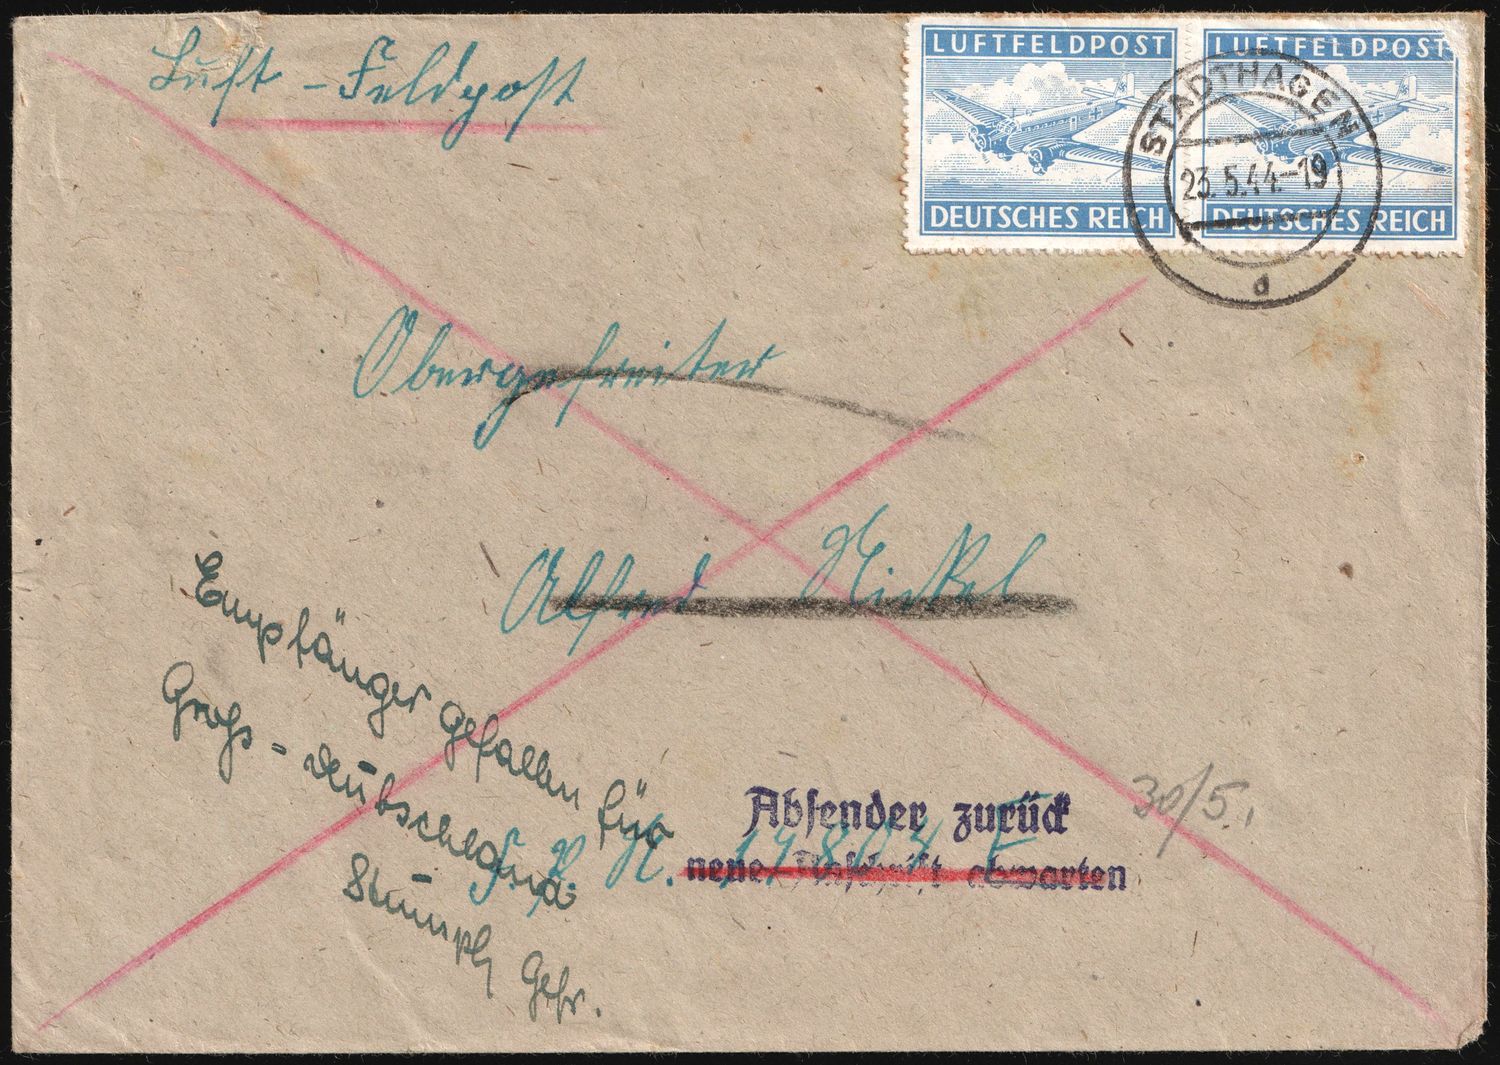 Luft-Feldpost
LUFTFELDPOST
DEUTSCHES REICH
LUFTFELDPOST
DEUTSCHES REICH
STADTHAGEN
23.5.44.-19
d
Obergefreiter
Alfred Nickel
Empfänger gefallen für
Groß-Deutschland.
Gefr.
F. P. N.
Absender zurück
neue Anschrift abwarten
30/5.